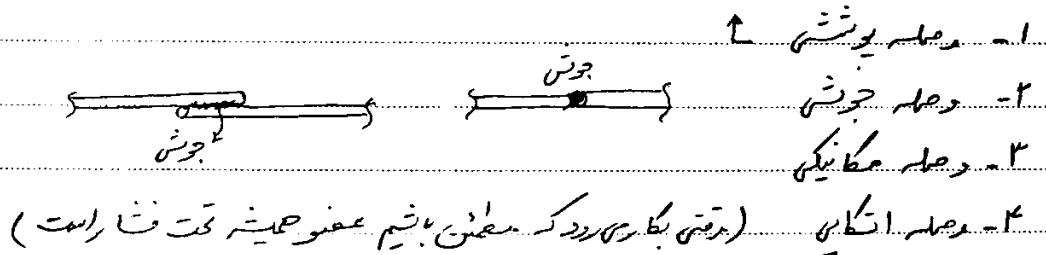 ۱- وصله پوششی
جوش
۲- وصله جوشی
جوش
۳- وصله مکانیکی
۴- وصله اتکایی (وقتی بکار می رود که مطمئن باشیم عضو همیشه تحت فشار است)